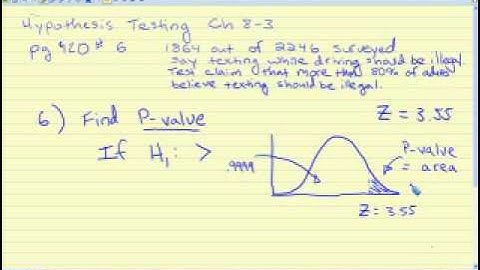 Hypothesis Testing Ch 8-3
pg 420 # 6 1864 out of 2246 surveyed
say texting while driving should be illegal.
Test claim that more than 80% of adults
believe texting should be illegal.
6) Find P-value
Z = 3.55
If H₁: >
.9999
P-value
= area
Z = 3.55